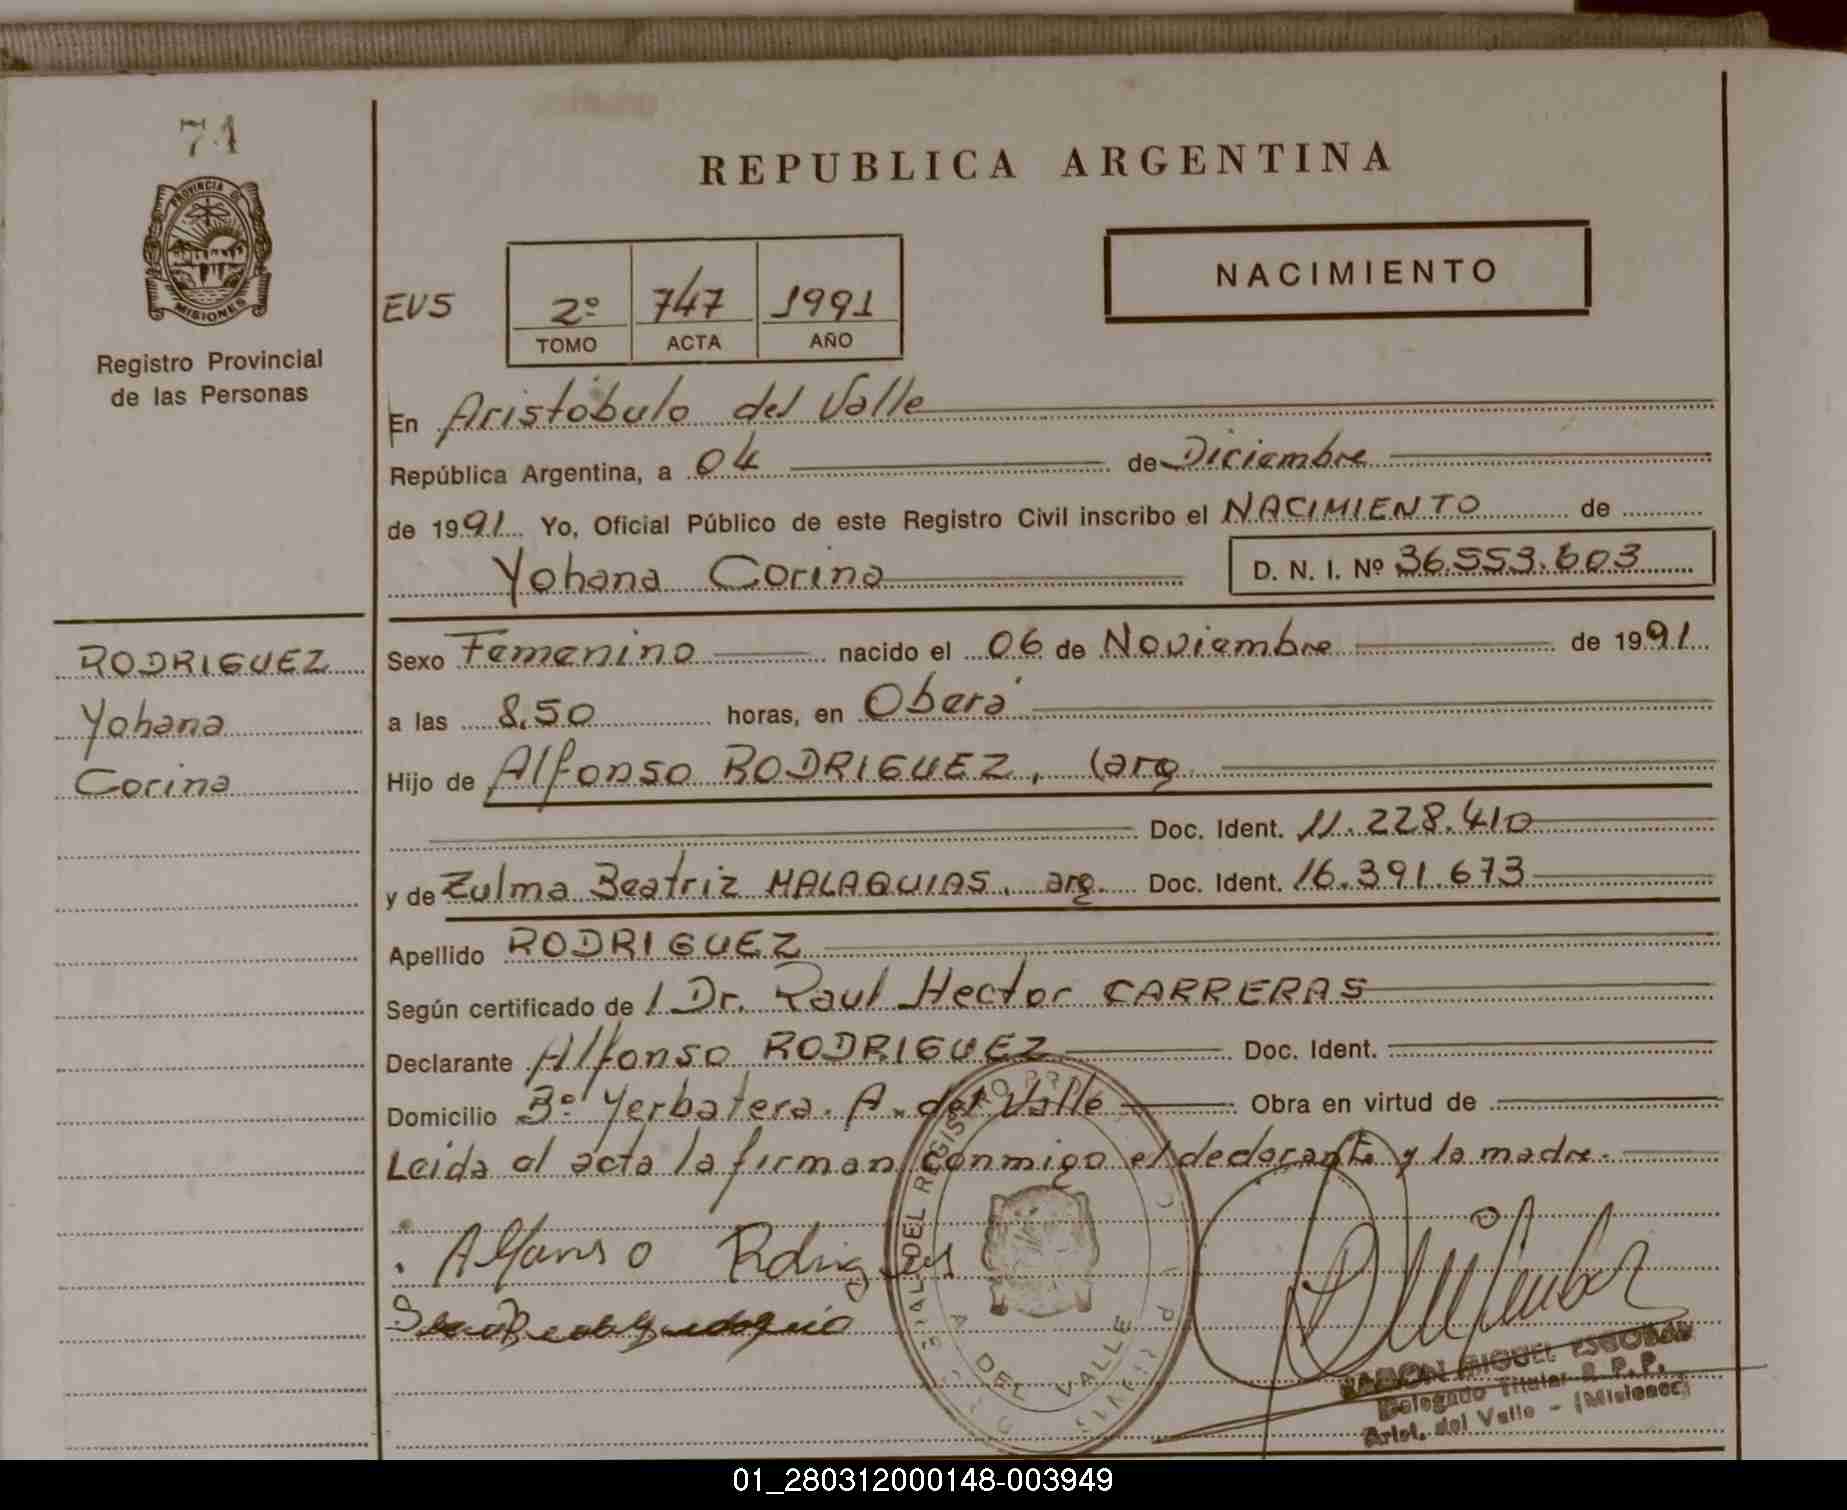 71
PROVINCIA DE
MISIONES
Registro Provincial
de las Personas
RODRIGUEZ
Yohana
Corina
REPUBLICA ARGENTINA
NACIMIENTO
EVS
2º 747 1991
TOMO ACTA AÑO
En Aristóbulo del Valle
República Argentina, a 04 de Diciembre
de 1991. Yo, Oficial Público de este Registro Civil inscribo el NACIMIENTO de
Yohana Corina D. N. I. Nº 36.553.603
Sexo Femenino nacido el 06 de Noviembre de 1991
a las 8,50 horas, en Oberá
Hijo de Alfonso RODRIGUEZ, (arg.
Doc. Ident. 11.228.410
y de Zulma Beatriz MALAQUIAS, arg. Doc. Ident. 16.391.673
Apellido RODRIGUEZ
Según certificado de l Dr. Raul Hector CARRERAS
Declarante Alfonso RODRIGUEZ Doc. Ident.
Domicilio Bº Yerbatera. A. del Valle Obra en virtud de
Leida al acta la firman conmigo el declarante y la madre.
Alfonso
DEL REGISTRO
DEL VALLE
RAMON MIGUEL ESCOBAR
Delegado Titular R. P. P.
Arist. del Valle - (Misiones)
01_280312000148-003949